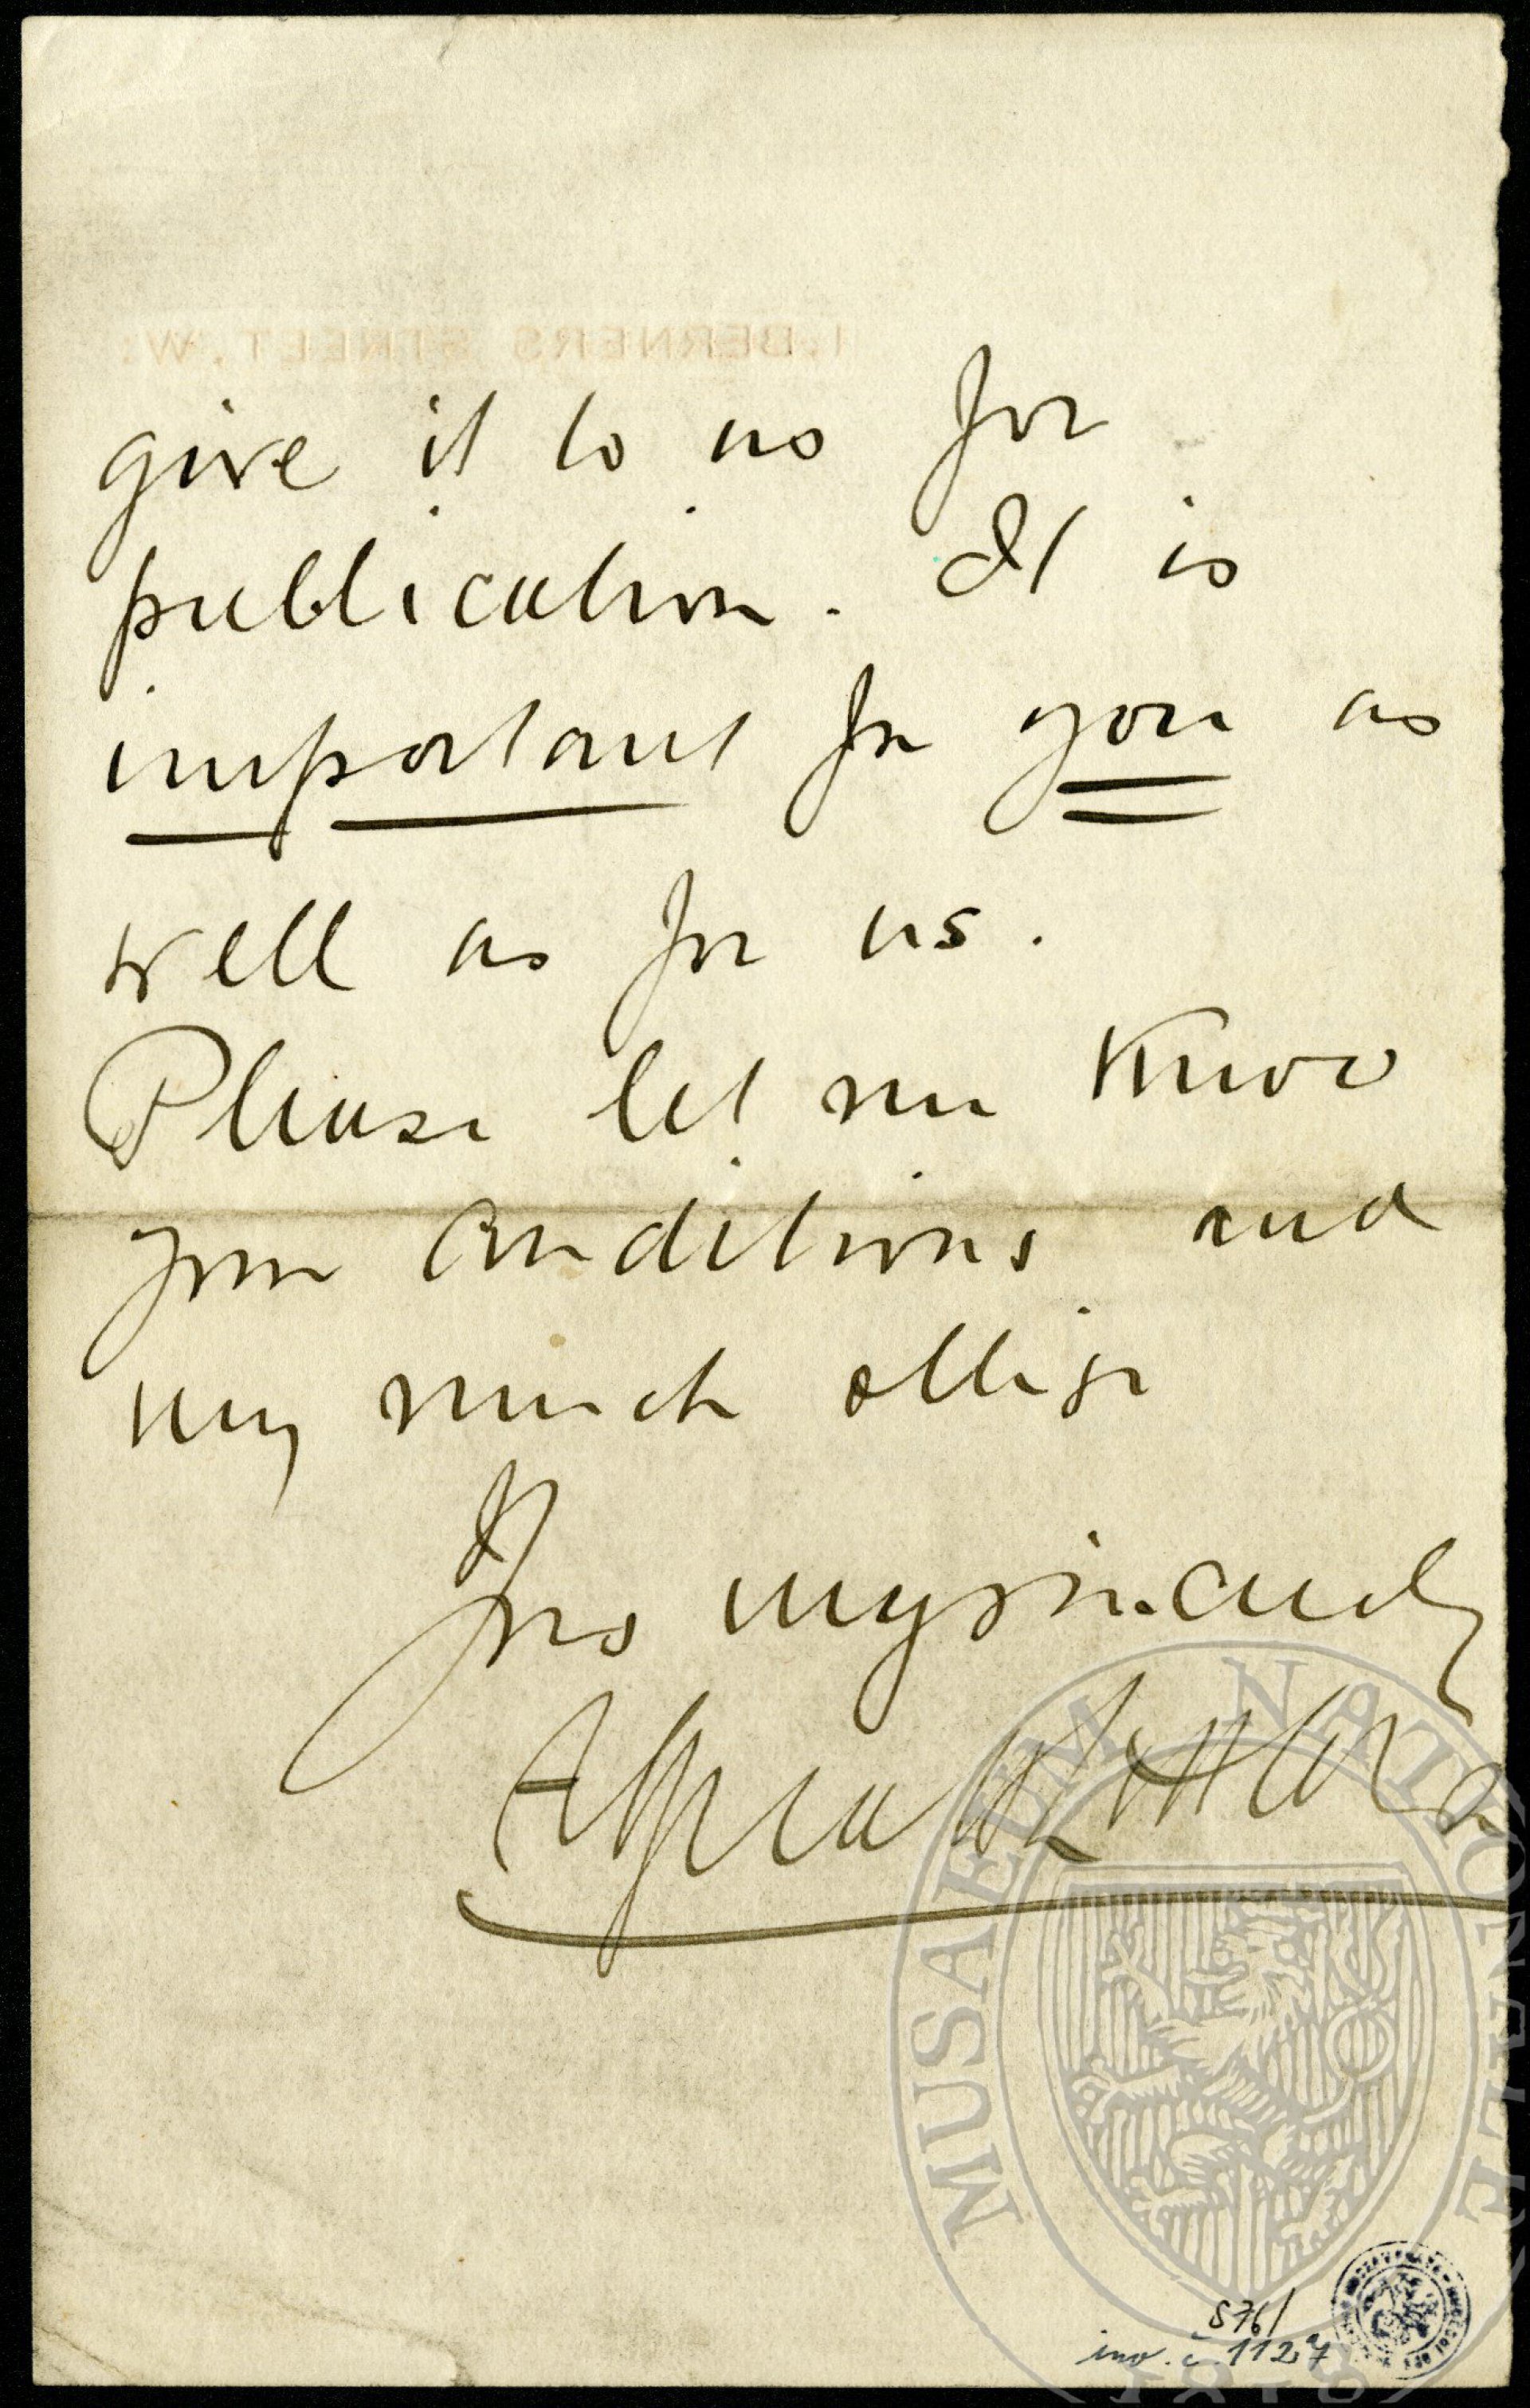 1. BERNERS STREET. W.
give it to us for
publication. It is
important for you as
well as for us.
Please let me know
your conditions and
very much oblige
Yrs very sincerely
Alfred Littleton
MUSAEUM NATIONALE
1818
576/
inv. č. 1127